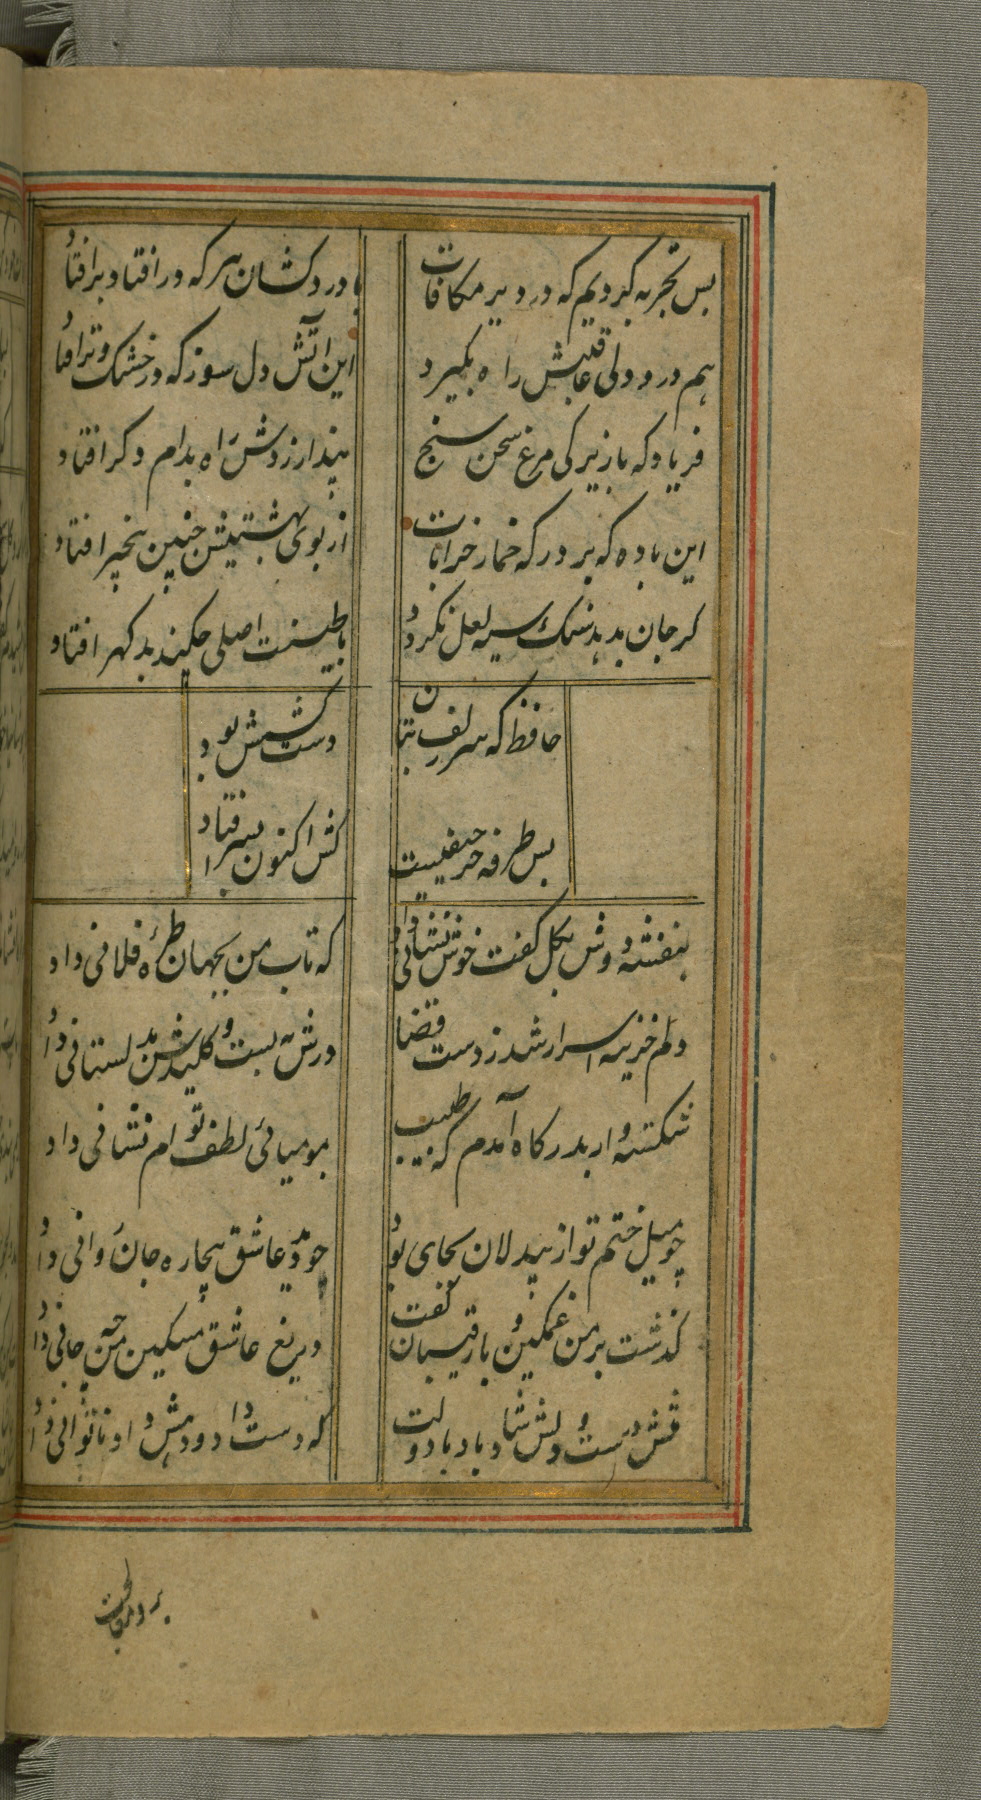 بس تجربه کردیم که در دیر مکافات با درد کشان هر که در افتاد بر افتاد
هم درد دلی عاقبتش راه بگیرد این آتش دل سوز که در خشک و تر افتاد
فریاد که با زیرکی مرغ سخن سنج پندار زدش راه بدام دگر افتاد
این باده که پرورد که خمار خرابات از بوی بهشتیش چنین بیخبر افتاد
گر جان بدهد سنگ سیه لعل نگردد با طینت اصلی چکند بد گهر افتاد
حافظ که سر زلف بتان دست کشش بود
بس طرفه حریفیست کش اکنون بسر افتاد
بنفشه دوش بگل گفت خوش نشانی داد که تاب من بجهان طره فلانی داد
دلم خزینه اسرار شد ز دست قضا درش به بست و کلیدش بدلستانی داد
شکسته وار بدرگاه آمدم که طبیب بمومیائی لطف توام نشانی داد
چو میل ختم تو از بیدلان بجای بود چو عاشق بیچاره جان وانی داد
گذشت بر من غمگین و با رقیبان گفت دریغ عاشق مسکین من چه جانی داد
تنش درست و دلش شاد باد با دولت که دست داد و دهش داد و ناتوانی داد
برو معالجت